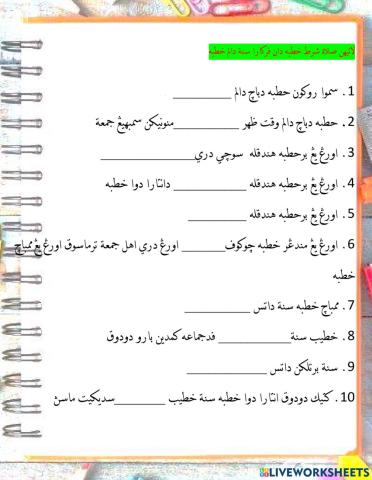 لاتيهن صلاة شرط خطبه دان فركارا سنة دالم خطبه
1. سموا روكون خطبه دباچ دالم ________
2. خطبه دباچ دالم وقت ظهر ________منونيكن سمبهيڠ جمعة
3. اورڠ يڠ برخطبه هندقله سوچي دري____________
4. اورڠ يڠ برخطبه هندقله ____________ دانتارا دوا خطبه
5. اورڠ يڠ برخطبه هندقله ____________
6. اورڠ يڠ مندڠر خطبه چوكوف______ اورڠ دري اهل جمعة ترماسوق اورڠ يڠ ممباچ
خطبه
7. ممباچ خطبه سنة داتس __________
8. خطيب سنة____________ فدجماعه كمدين بارو دودوق
9. سنة برتلكن داتس ____________
10. كتيك دودوق انتارا دوا خطبه سنة خطيب ________سديكيت ماسن
LIVEWORKSHEETS